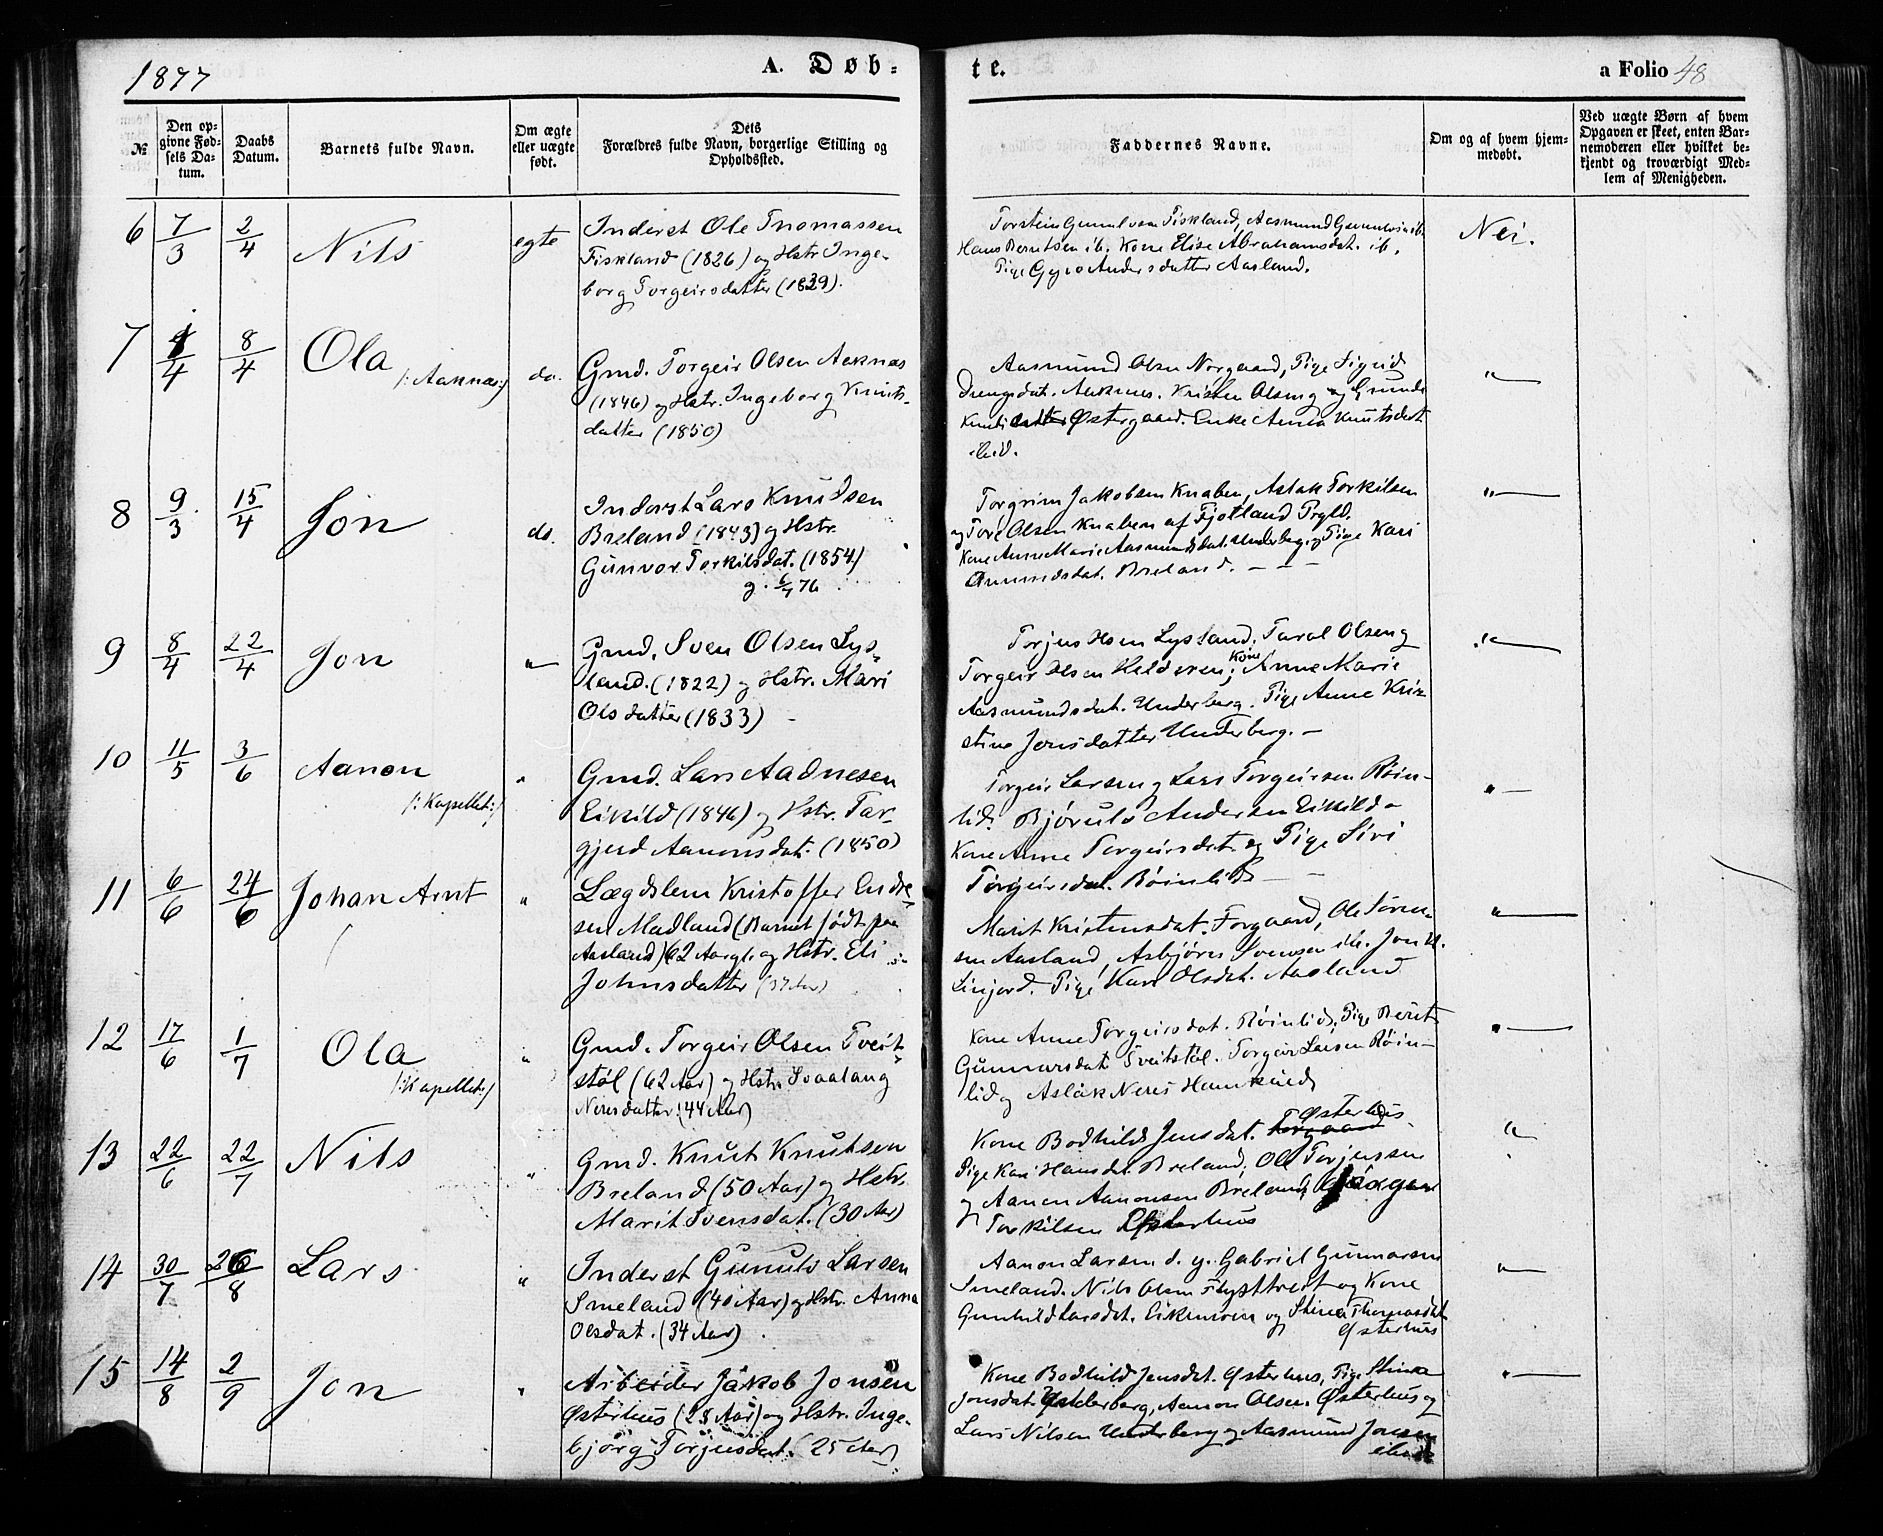 1877
A. Døb=
te.
a Folio 48
№
Den op-
givne Fød-
sels Da-
tum.
Daabs
Datum.
Barnets fulde Navn.
Om ægte
eller uægte
født.
Dets
Forældres fulde Navn, borgerlige Stilling og
Opholdssted.
Faddernes Navne.
Om og af hvem hjem-
medøbt.
Ved uægte Børn af hvem
Opgaven er skeet, enten Bar-
nemoderen eller hvilket be-
kjendt og troværdigt Med-
lem af Menigheden.
6 7/3 2/4 Nils egte
Inderst Ole Thomassen
Fiskland (1826) og Hstr Inge-
borg Torgeirsdatter (1839).
Torstein Gunnulvsen Fiskland, Aasmund Gunnulvsen ib.
Hans Berntsen ib. Kone Elise Abrahamsdat. ib.
Pige Gyro Andersdatter Aasland.
Nei.
7 /4 8/4 Ola /:Aaknæs:/ do.
Gmd. Torgeir Olsen Aaknæs
(1846) og Hstr. Ingeborg Knuts-
datter (1850)
Aasmund Olsen Norgaard, Pige Sigrid
Drengsdat. Aaknes. Kristen Olsen og Gunds
Knutsdatter Østergaard. Enke Anna Knutsdat
Lid.
"
8 9/3 15/4 Jon do.
Inderst Lars Knudsen
Breland (1843) og Hstr.
Gunvor Torkilsdat. (1854)
g. 6/7 76
Torgrim Jakobsen Knaben, Aslak Torkilsen
og Tore Olsen Knaben af Fjotland Prgld.
Kone Anne Marie Aasmundsdat. Underberg og Pige Kari
Aanundsdat. Breland. – – –
"
9 8/4 22/4 Jon "
Gmd. Sven Olsen Lys-
land. (1822) og Hstr. Mari
Olsdatter (1833) –
Torjus Hsen Lysland. Taral Olsen og
Torgeir Olsen Helderen; Kone Anne Marie
Aasmundsdat. Underberg. Pige Anne Kri-
stine Jonsdatter Underberg. –
"
10 11/5 3/6 Aanon /:Kapellet:/ "
Gmd. Lars Aadnesen
Eikild (1846) og Hstr. Tar-
gjerd Aanonsdat. (1850)
Torgeir Larsen og Lars Torgeirsen Røin-
lid. Bjørulv Andersen Eikild –
Kone Anne Torgeirsdat. og Pige Siri
Torgeirsdat. Røinlid – –
"
11 6/6 24/6 Johan Arnt "
Lægdslem Kristoffer Endre-
sen Madland (Barnet født paa
Aasland) 62 Aar gl. og Hstr. Eli
Johnsdatter (37 Aar)
Marit Kristensdat. Forgaard, Ole Tøren-
sen Aasland, Asbjørn Svensen ib. Jon
Linjord. Pige Kari Olsdat. Aasland
"
12 17/6 1/7 Ola /:Kapellet:/ "
Gmd. Torgeir Olsen Tveit-
støl (62 Aar) og Hstr. Svaalaug
Neresdatter (44 Aar)
Kone Anne Torgeirsdat. Røinlid, Pige Berit
Gunnarsdat Tveitstøl. Torgeir Larsen Røin-
lid og Aslak Neres
"
13 22/6 22/7 Nils "
Gmd. Knut Knutsen
Breland (50 Aar) og Hstr.
Marit Svensdat. (30 Aar)
Kone Bodhild Jensdat. Forgaard Østerhus.
Pige Kari Hansdat Breland; Ole Torjussen
og Aanen Aanonsen Breland, Jörgen
Torkilsen Østerhus
"
14 30/7 26/8 Lars "
Inderst Gunulv Larsen
Smeland (40 Aar) og Hstr. Anna
Olsdat. (34 Aar).
Aanon Larsen d. y. Gabriel Gunnarsen
Smeland. Nils Olsen Flyttveit og Kone
Gunhild Larsdat. Eikemoen og Stine Thomasdat
Østerhus
"
15 14/8 2/9 Jon "
Arbeider Jakob Jonsen
Østerhus (28 Aar) og Hstr. Inge-
bjørg Torjusdat. (25 Aar)
Kone Bodhild Jensdat. Østerhus, Pige Stina
Jonsdat. Underberg, Aanon Olsen Østerhus og
Lars Nilsen Underberg og Aasmund Jonsen
"